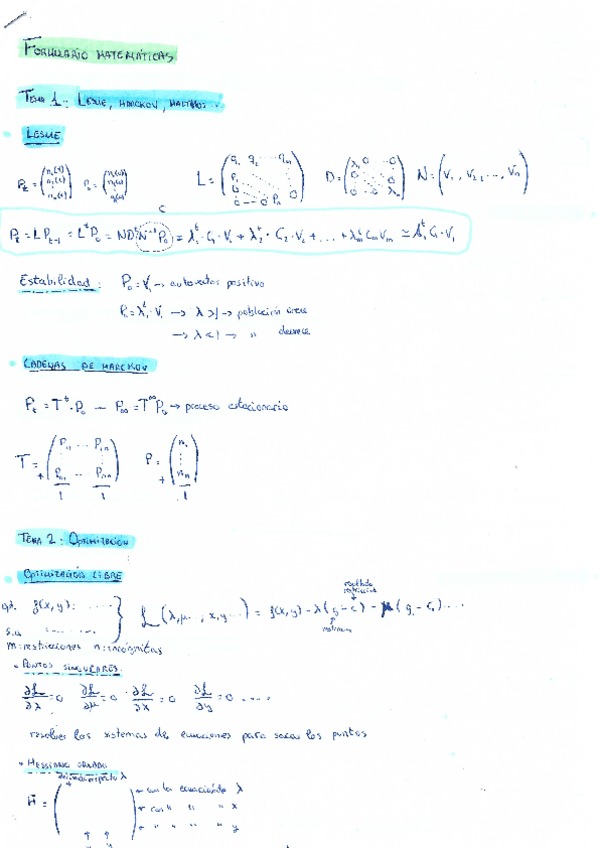 FORMULARIO MATEMÁTICAS
TEMA 1: LESLIE, MARCKOV,
LESLIE
P_t = (n_1(t) n_2(t) ⋮ n_n(t)) P_0 = (n_1(0) n_2(0) ⋮) L = (q_1 q_2 ... q_m; P_1 ... 0; 0 ... 0 P_n 0) D = (λ_1 0 ... 0; 0 ... 0; 0 ... 0 λ_n) N = (V_1, V_2, ..., V_n)
C
P_t = L P_{t-1} = L^t P_0 = N D^t N^{-1} P_0 = λ_1^t · C_1 · V_1 + λ_2^t · C_2 · V_2 + ... + λ_m^t C_m V_m ≃ λ_1^t C_1 · V_1
Estabilidad: P_0 = V_1 → autovector positivo
P_t = λ_1^t · V_1 → λ > 1 → población crece
→ λ < 1 → " decrece
CADENAS DE MARCKOV
P_t = T^t · P_0 — P_∞ = T^∞ P_0 → proceso estacionario
T = (P_11 ... P_1n; ⋮ ⋮; P_n1 ... P_nn) P = (n_1 ⋮ n_n)
+ 1 1 + 1
TEMA 2: OPTIMIZACIÓN
OPTIMIZACIÓN LIBRE
resultado restricción
opt. f(x,y): ..... } L(λ, μ.., x, y...) = f(x,y) - λ(g - c) - μ(g_1 - c_1) ...
s.a ...........
m: restricciones n: incógnitas
• PUNTOS SINGULARES.
∂L/∂λ = 0 ∂L/∂μ = 0 ∂L/∂x = 0 ∂L/∂y = 0 ....
resolver los sistemas de ecuaciones para sacar los puntos
• HESSIANO ORLADO
respecto λ
H̄ = ( ) → con la ecuación de λ
→ con " " " x
→ " " " " y